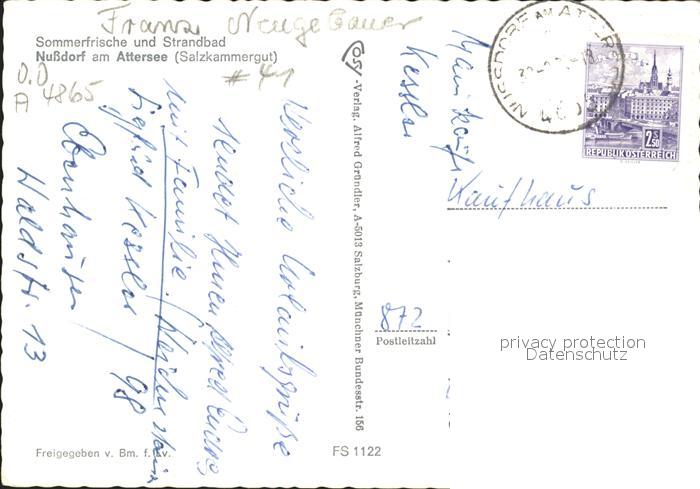 Franz Neugebauer
Sommerfrische und Strandbad
Nußdorf am Attersee (Salzkammergut)
O.D
A 4865
#41
Herzliche Urlaubsgrüße
sendet Ihnen Alfred
mit Familie.
Sigfrid Kessler / 98
Ebenhausen
Waldstr. 13
Cosy-Verlag, Alfred Gründler, A-5013 Salzburg, Münchner Bundesstr. 156
Kessler
Kaufhaus
ATTERSEE
2.50
REPUBLIK ÖSTERREICH
872
Postleitzahl
privacy protection
Datenschutz
Freigegeben v. Bm. f. Lv.
FS 1122